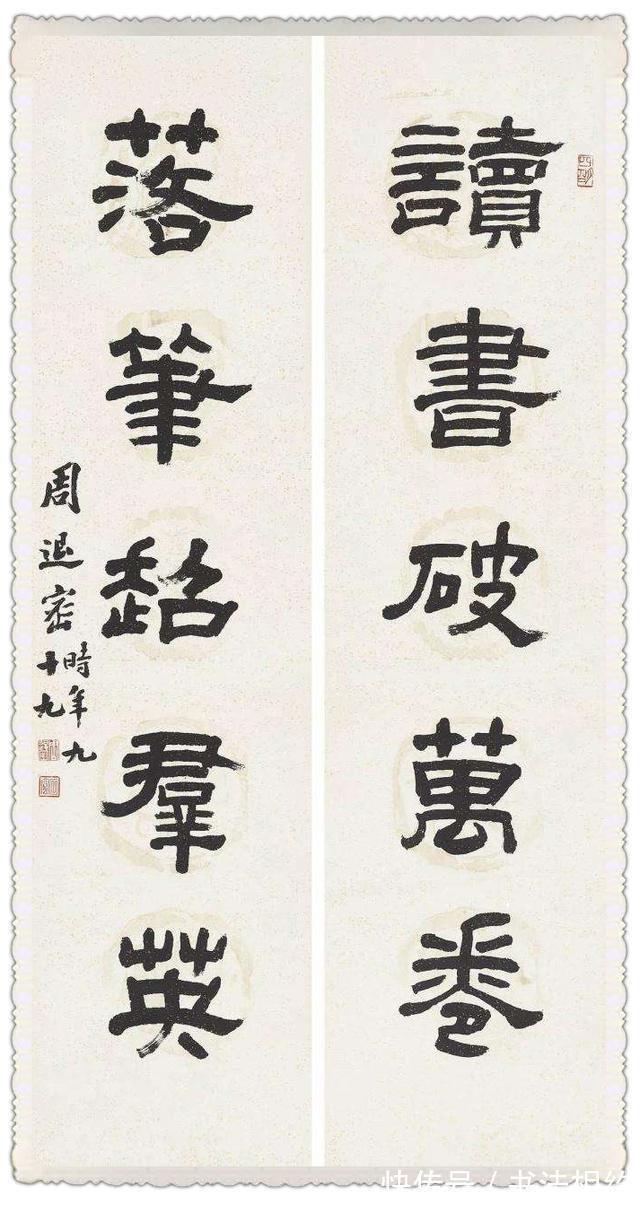 讀書破萬卷
落筆超羣英
周退密
時年九
十九
快传号 / 书法相约